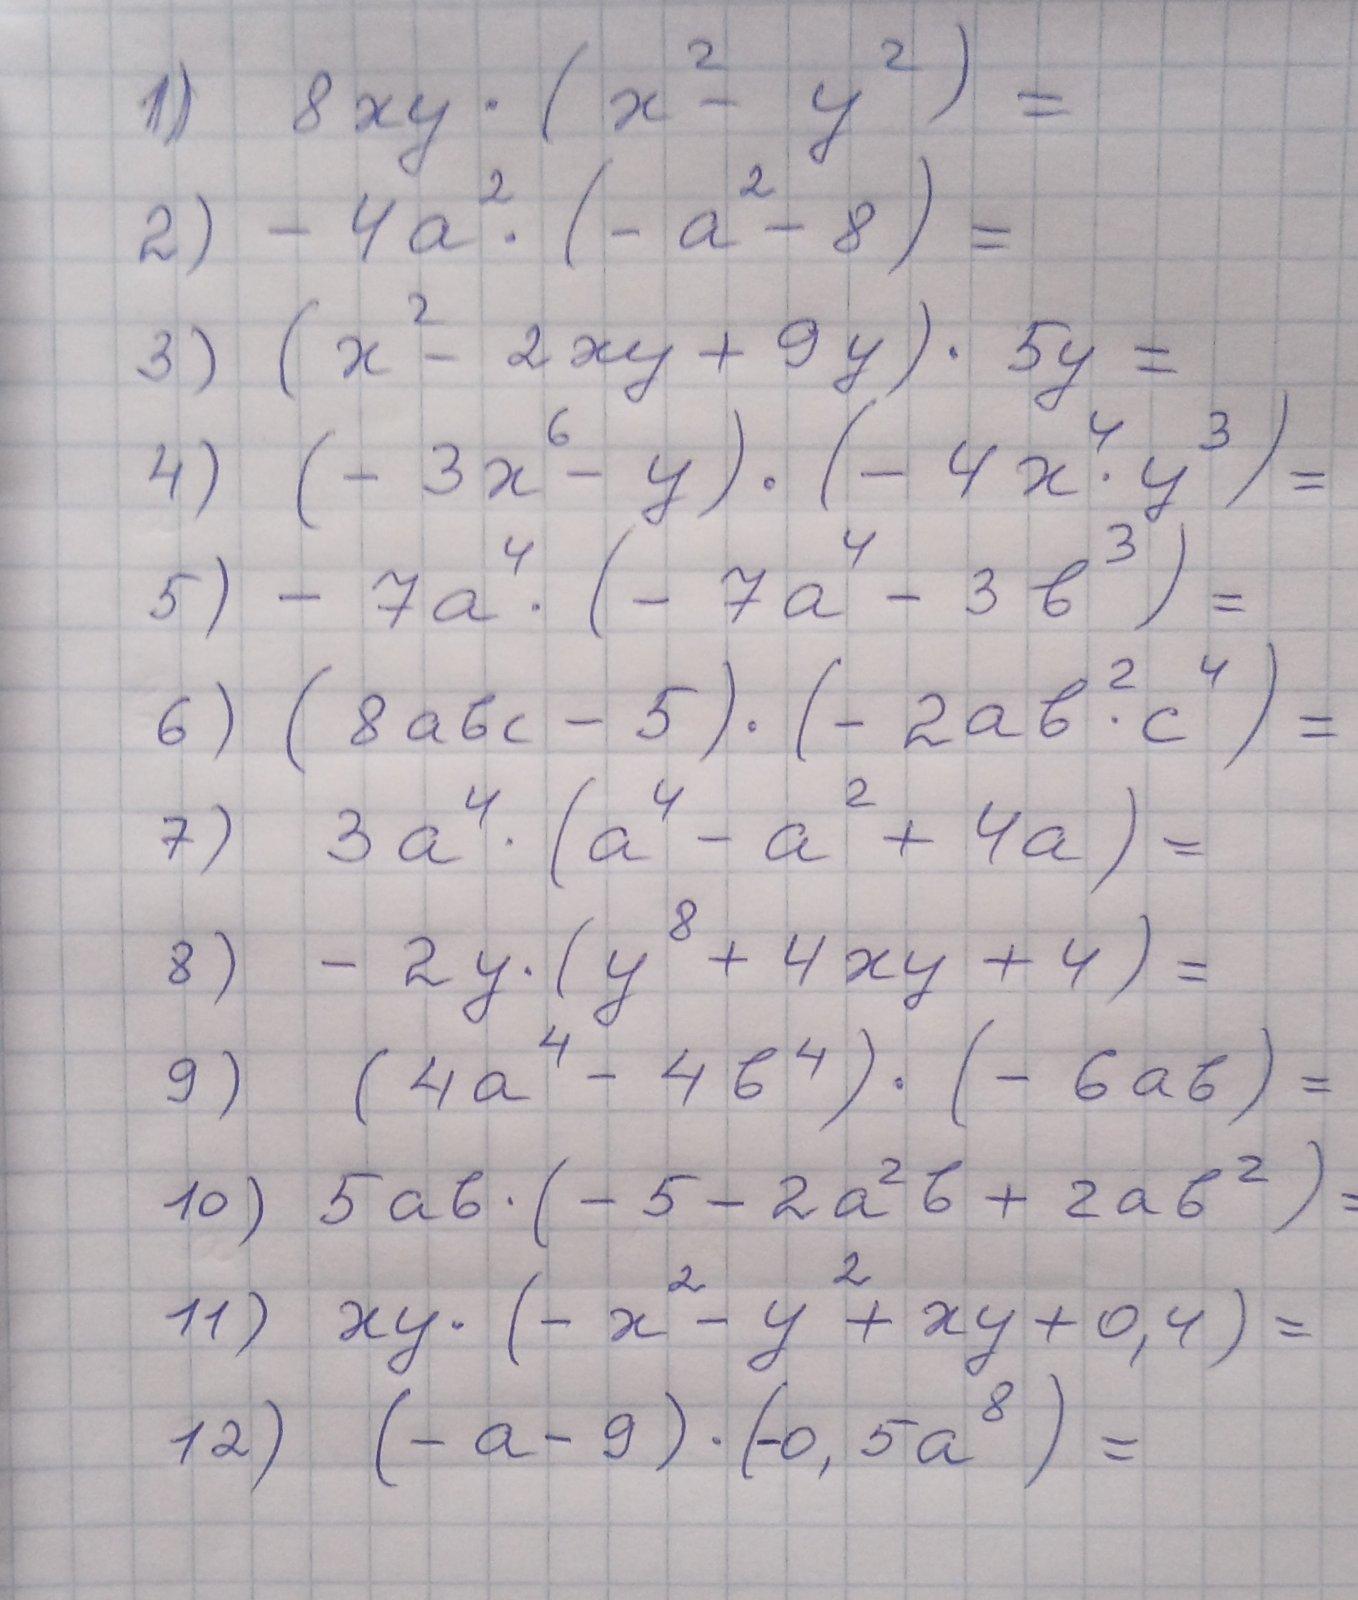 1) 8xy · (x² - y²) =
2) - 4a² · (- a² - 8) =
3) (x² - 2xy + 9y) · 5y =
4) (- 3x⁶ - y) · (- 4x⁴ · y³) =
5) - 7a⁴ · (- 7a⁴ - 3b³) =
6) (8abc - 5) · (- 2ab² · c⁴) =
7) 3a⁴ · (a⁴ - a² + 4a) =
8) - 2y · (y⁸ + 4xy + 4) =
9) (4a⁴ - 4b⁴) · (- 6ab) =
10) 5ab · (- 5 - 2a²b + 2ab²) =
11) xy · (- x² - y² + xy + 0,4) =
12) (- a - 9) · (-0,5a⁸) =